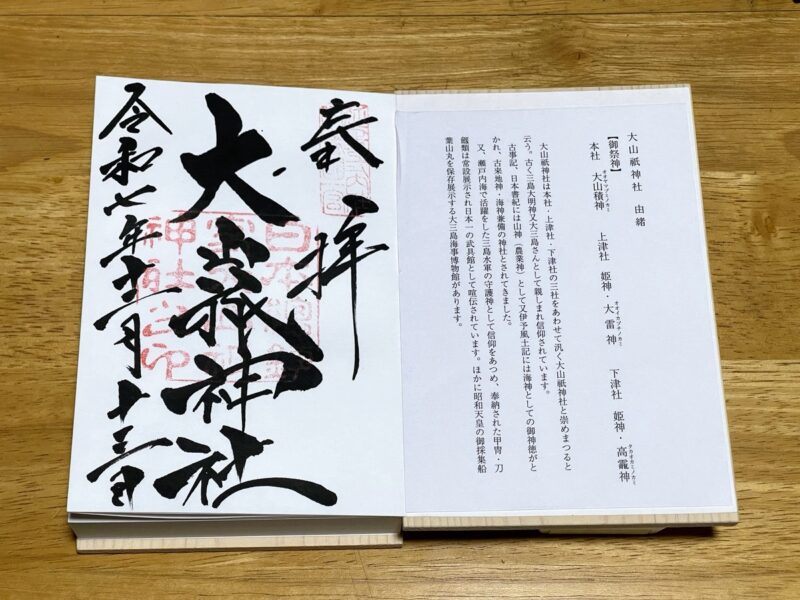 大山祇神社 由緒
【御祭神】
本社 大山積神 上津社 姫神・大雷神 下津社 姫神・高龗神
オオヤマヅミノカミ オオイカヅチノカミ タカオカミノカミ
大山祇神社は本社・上津社・下津社の三社をあわせて汎く大山祇神社と崇めまつると
云う。古く三島大明神又大三島さんとして親しまれ信仰されています。
古事記、日本書紀には山神(農業神)として又伊予風土記には海神としての御神徳がと
かれ、古来地神・海神兼備の神社とされてきました。
又、瀬戸内海で活躍をした三島水軍の守護神として信仰をあつめ、奉納された甲冑・刀
類は常設展示され日本一の武具館として喧伝されています。ほかに昭和天皇の御採集船
葉山丸を保存展示する大三島海事博物館があります。
奉拝
大山祇神社
令和七年十一月十三日